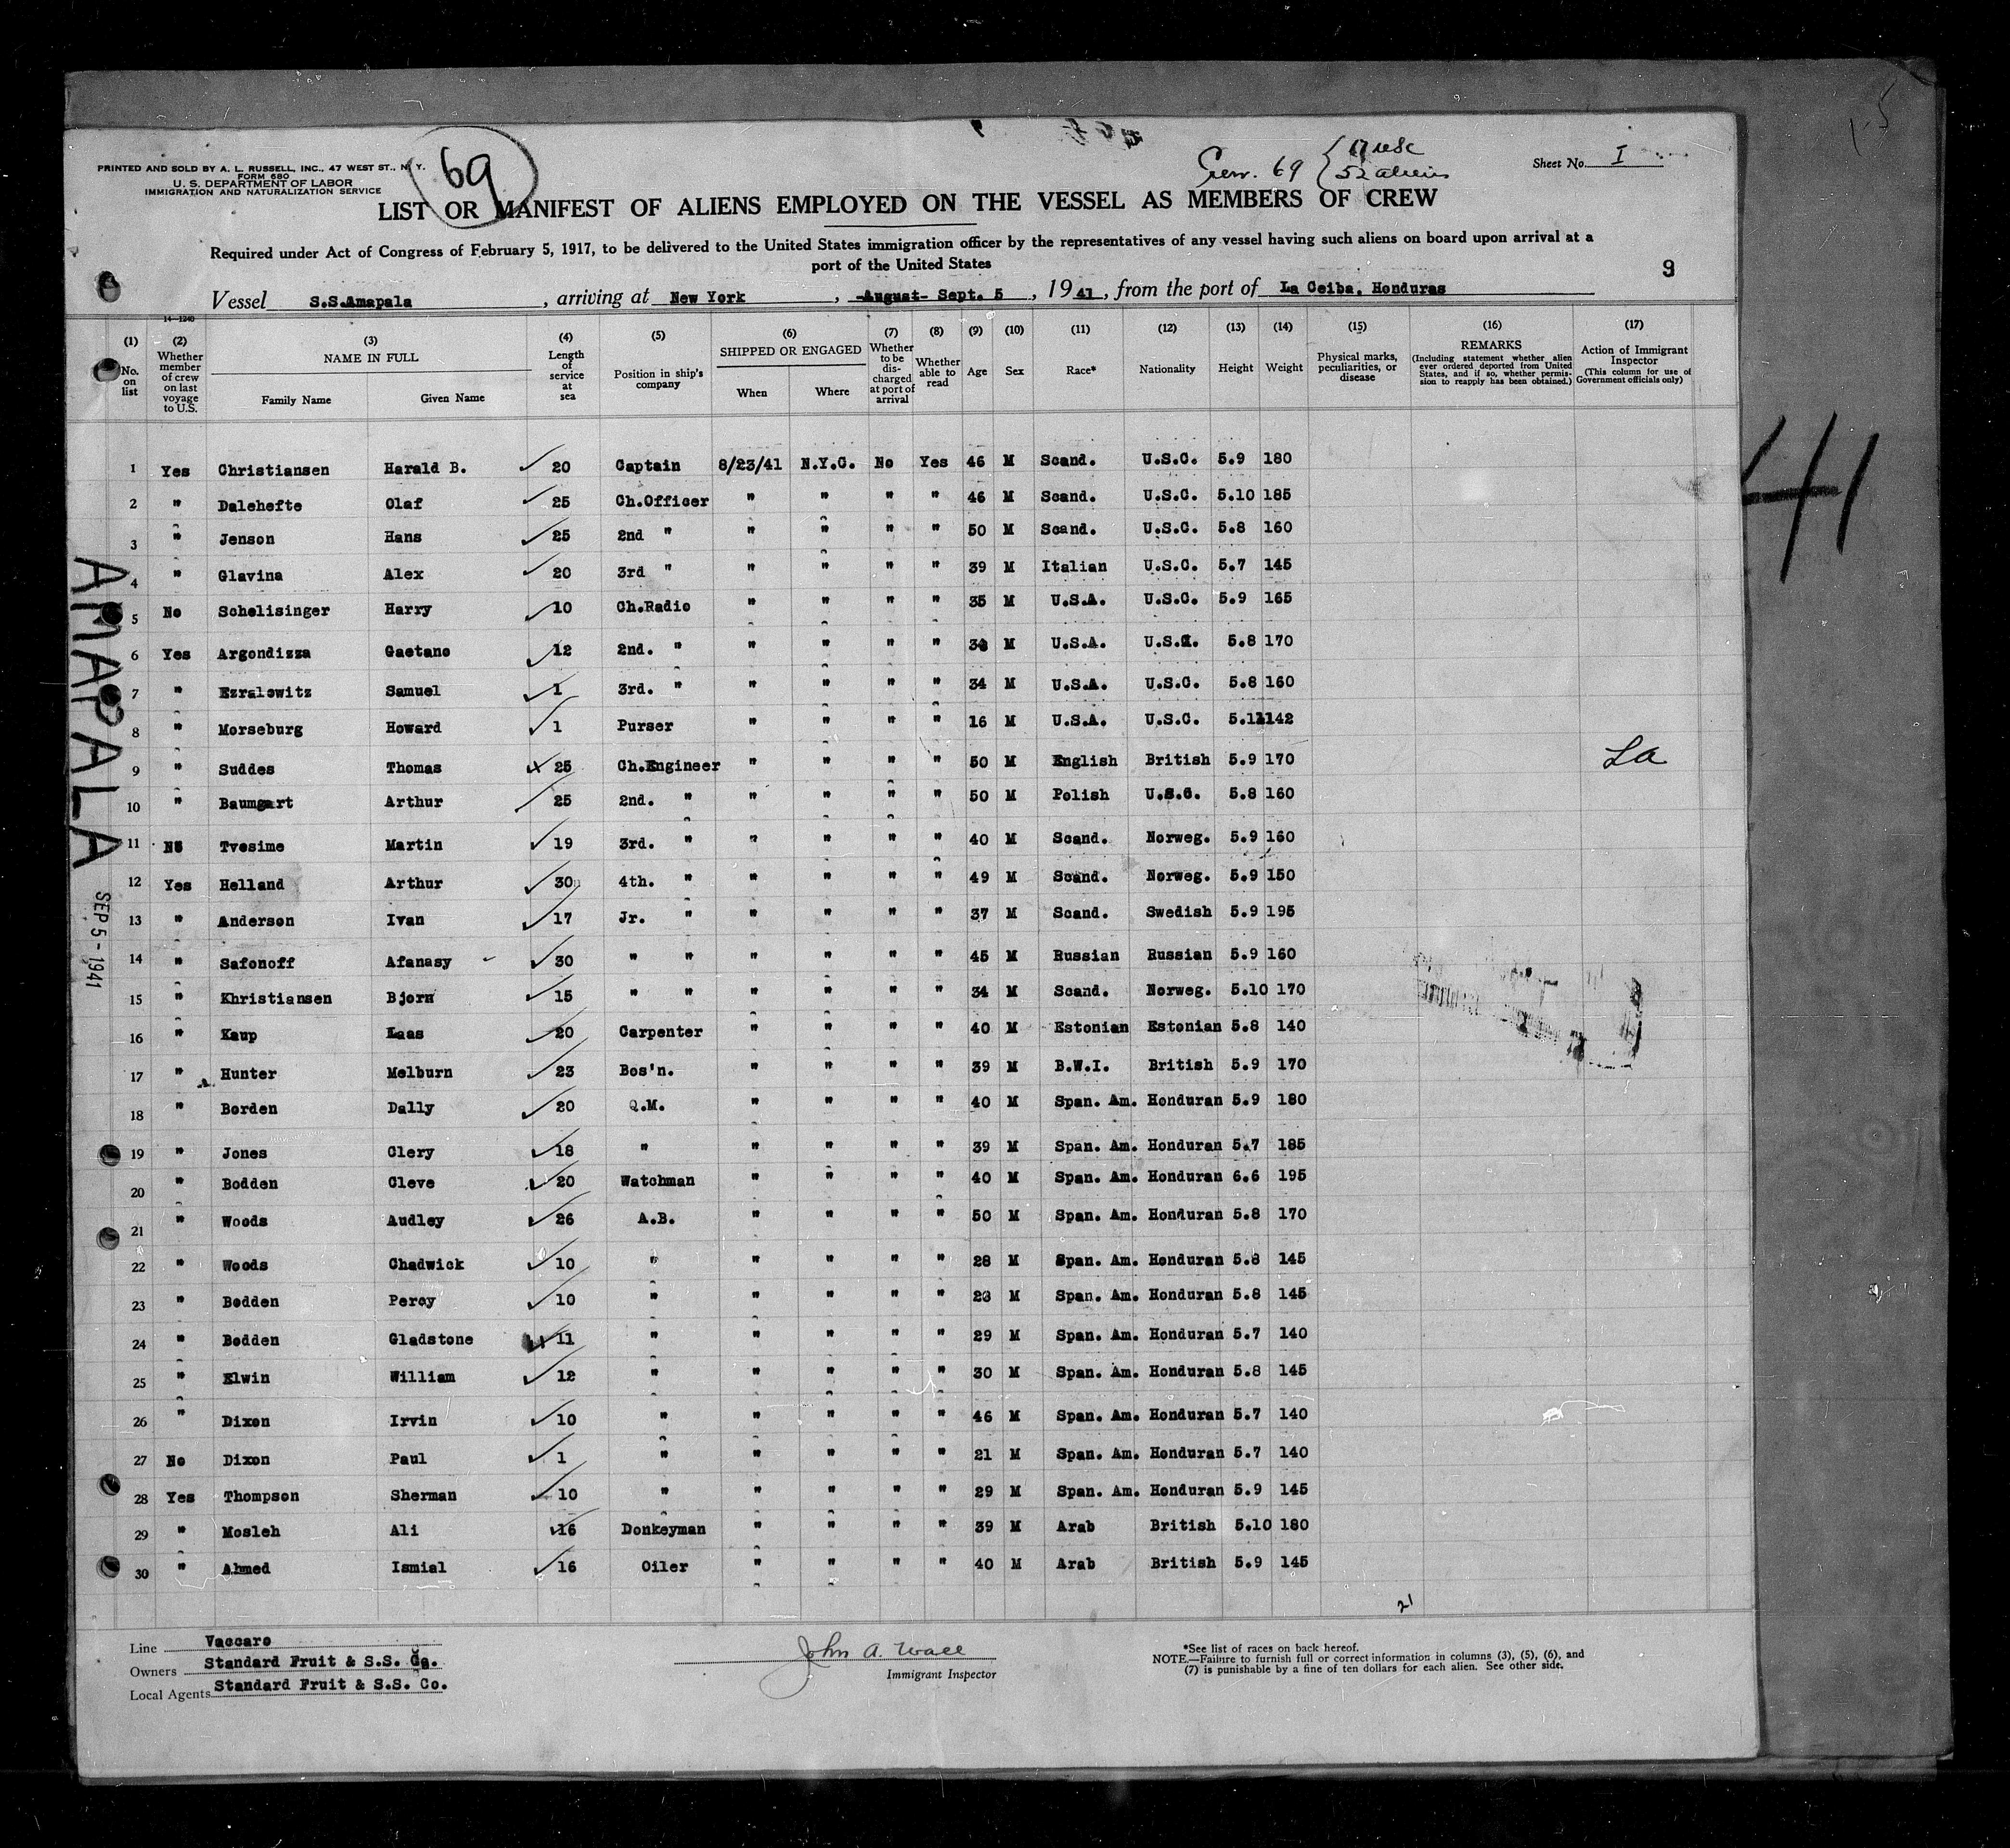 69
Crew. 69 { 17 usc
52 aliens
Sheet No. I
PRINTED AND SOLD BY A. L. RUSSELL, INC., 47 WEST ST., N. Y.
FORM 680
U. S. DEPARTMENT OF LABOR
IMMIGRATION AND NATURALIZATION SERVICE
LIST OR MANIFEST OF ALIENS EMPLOYED ON THE VESSEL AS MEMBERS OF CREW
Required under Act of Congress of February 5, 1917, to be delivered to the United States immigration officer by the representatives of any vessel having such aliens on board upon arrival at a
port of the United States
9
Vessel S.S.Amapala, arriving at New York, -August- Sept. 5, 1941, from the port of La Ceiba, Honduras
14-1240
(1) (2) (3) (4) (5) (6) (7) (8) (9) (10) (11) (12) (13) (14) (15) (16) (17)
No. on list
Whether member of crew on last voyage to U.S.
NAME IN FULL
Family Name Given Name
Length of service at sea
Position in ship's company
SHIPPED OR ENGAGED
When Where
Whether to be discharged at port of arrival
Whether able to read
Age Sex Race* Nationality Height Weight
Physical marks, peculiarities, or disease
REMARKS
(Including statement whether alien ever ordered deported from United States, and if so, whether permission to reapply has been obtained.)
Action of Immigrant Inspector
(This column for use of Government officials only)
1 Yes Christiansen Harald B. 20 Captain 8/23/41 N.Y.C. No Yes 46 M Scand. U.S.C. 5.9 180
2 " Dalehefte Olaf 25 Ch.Officer " " " " 46 M Scand. U.S.C. 5.10 185
3 " Jenson Hans 25 2nd " " " " " 50 M Scand. U.S.C. 5.8 160
4 " Glavina Alex 20 3rd " " " " " 39 M Italian U.S.C. 5.7 145
5 No Schelisinger Harry 10 Ch.Radio " " " " 35 M U.S.A. U.S.C. 5.9 165
6 Yes Argondizza Gaetano 12 2nd. " " " " " 34 M U.S.A. U.S.C. 5.8 170
7 " Ezralowitz Samuel 1 3rd. " " " " " 34 M U.S.A. U.S.C. 5.8 160
8 " Morseburg Howard 1 Purser " " " " 16 M U.S.A. U.S.C. 5.11 142
9 " Suddes Thomas 25 Ch.Engineer " " " " 50 M English British 5.9 170
10 " Baumgart Arthur 25 2nd. " " " " " 50 M Polish U.S.C. 5.8 160
11 No Tvesime Martin 19 3rd. " " " " " 40 M Scand. Norweg. 5.9 160
12 Yes Helland Arthur 30 4th. " " " " " 49 M Scand. Norweg. 5.9 150
13 " Anderson Ivan 17 Jr. " " " " " 37 M Scand. Swedish 5.9 195
14 " Safonoff Afanasy 30 " " " " " " 45 M Russian Russian 5.9 160
15 " Khristiansen Bjorn 15 " " " " " " 34 M Scand. Norweg. 5.10 170
16 " Kaup Laas 20 Carpenter " " " " 40 M Estonian Estonian 5.8 140
17 " Hunter Melburn 23 Bos'n. " " " " 39 M B.W.I. British 5.9 170
18 " Borden Dally 20 Q.M. " " " " 40 M Span. Am. Honduran 5.9 180
19 " Jones Clery 18 " " " " " 39 M Span. Am. Honduran 5.7 185
20 " Bodden Cleve 20 Watchman " " " " 40 M Span. Am. Honduran 6.6 195
21 " Woods Audley 26 A.B. " " " " 50 M Span. Am. Honduran 5.8 170
22 " Woods Chadwick 10 " " " " " 28 M Span. Am. Honduran 5.8 145
23 " Bodden Percy 10 " " " " " 23 M Span. Am. Honduran 5.8 145
24 " Bodden Gladstone 11 " " " " " 29 M Span. Am. Honduran 5.7 140
25 " Elwin William 12 " " " " " 30 M Span. Am. Honduran 5.8 145
26 " Dixon Irvin 10 " " " " " 46 M Span. Am. Honduran 5.7 140
27 No Dixon Paul 1 " " " " " 21 M Span. Am. Honduran 5.7 140
28 Yes Thompson Sherman 10 " " " " " 29 M Span. Am. Honduran 5.9 145
29 " Mosleh Ali 16 Donkeyman " " " " 39 M Arab British 5.10 180
30 " Ahmed Ismial 16 Oiler " " " " 40 M Arab British 5.9 145
21
AMAPALA
SEP 5 - 1941
41
Line Vaccaro
Owners Standard Fruit & S.S. Co.
Local Agents Standard Fruit & S.S. Co.
John A. Wall
Immigrant Inspector
*See list of races on back hereof.
NOTE.—Failure to furnish full or correct information in columns (3), (5), (6), and
(7) is punishable by a fine of ten dollars for each alien. See other side.